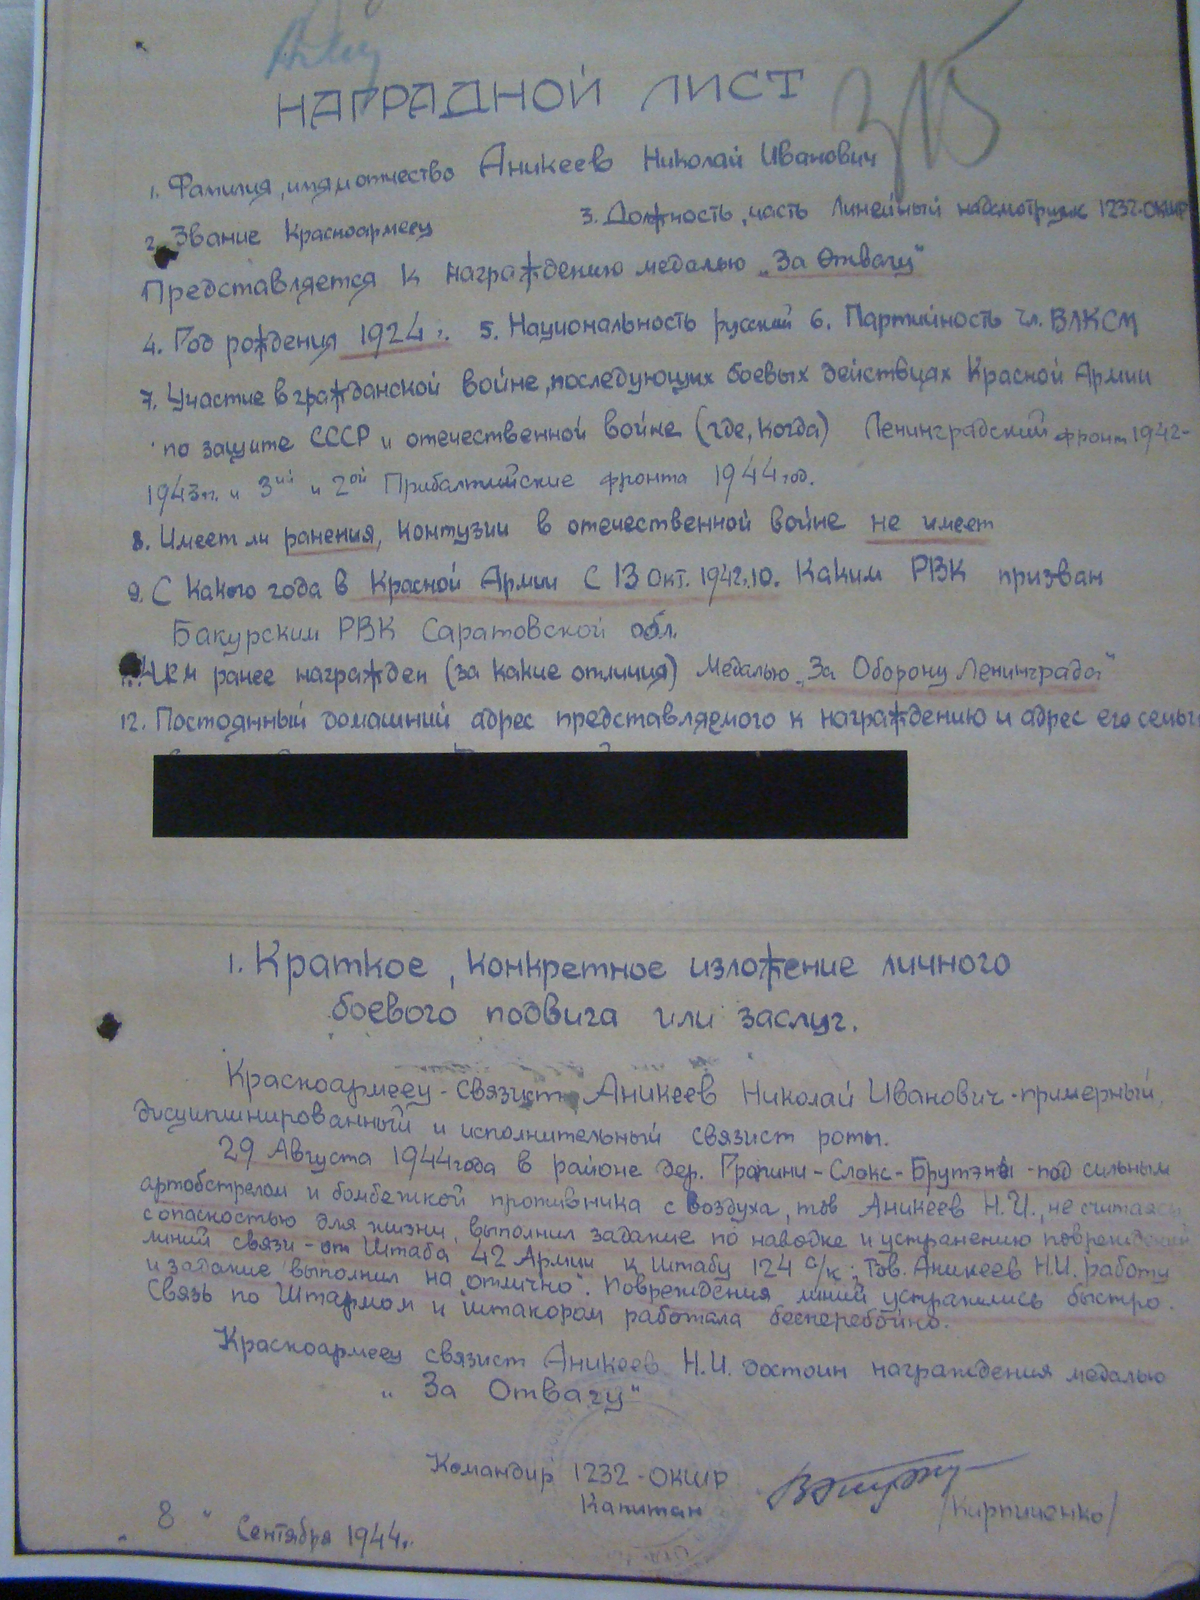 НАГРАДНОЙ ЛИСТ
1. Фамилия, имя и отчество Аникеев Николай Иванович
2. Звание Красноармеец 3. Должность, часть Линейный надсмотрщик 1232-ОКШР
Представляется к награждению медалью „За Отвагу"
4. Год рождения 1924 г. 5. Национальность русский 6. Партийность чл. ВЛКСМ
7. Участие в гражданской войне, последующих боевых действиях Красной Армии
по защите СССР и отечественной войне (где, когда) Ленинградский фронт 1942-
1943 гг. и 3ий и 2ой Прибалтийские фронта 1944 год.
8. Имеет ли ранения, контузии в отечественной войне не имеет
9. С какого года в Красной Армии С 13 окт. 1942 г. 10. Каким РВК призван
Бакурским РВК Саратовской обл.
Чем ранее награжден (за какие отличия) Медалью „За Оборону Ленинграда"
12. Постоянный домашний адрес представляемого к награждению и адрес его семьи
1. Краткое, конкретное изложение личного
боевого подвига или заслуг.
Красноармеец-связист Аникеев Николай Иванович - примерный,
дисциплинированный и исполнительный связист роты.
29 Августа 1944 года в районе дер. Слокс-Брутэны - под сильным
артобстрелом и бомбежкой противника с воздуха, тов Аникеев Н.И., не считаясь
с опасностью для жизни, выполнил задание по наводке и устранению повреждений
линий связи - от Штаба 42 Армии к Штабу 124 с/к; Тов. Аникеев Н.И. работу
и задание выполнил на „отлично". Повреждения линий устранялись быстро.
Связь по Штармом и штакором работала бесперебойно.
Красноармеец связист Аникеев Н.И. достоин награждения медалью
„За Отвагу"
Командир 1232-ОКШР
Капитан /Кирпиченко/
„8" Сентября 1944 г.